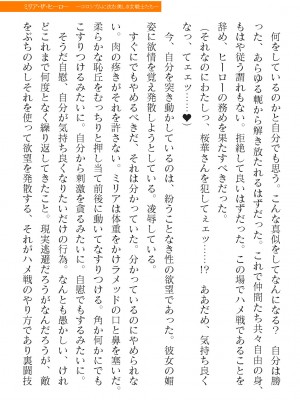 何をしているのかと自分でも思う。こんな真似をしてなんになる？　自分は勝
った。あらゆる軛から解き放たれるはずだった。これで仲間たち共々自由の身、
もはや従う謂れもない。拒絶して良いはずだった。この場でハメ戦であることも
辞め、ヒーローの務めを果たすべきだった。
「それなのにわたしっ、桜華さんを犯してェッ……!?　ああだめ、気持ち良く
なって、てェェッ……♥」
今、自分を突き動かしているのは、紛うことなき性の欲望であった。彼女の媚
姿に欲情を覚え発散しようとしている。凌辱している。
すぐにでもやめるべきだ、それは分かっていた。分かっているのにやめられな
い。肉の疼きがそれを許さない。ミリアは体重をかけラメッドの口と鼻を塞いだ。
柔らかな恥丘をむっちりと押し当て前後に動いてなすりつける。角か何かにでも
するみたいに。自分から刺激を貪るみたいに。自慰でもするみたいに。
そうだ自慰、自分が気持ち良くなりたいだけの行為。なんとも愚かしい、けれ
どこれまで何度となく繰り返してきたこと。現実逃避だろうがなんだろうが、敵
をぶちのめしそれを使って欲望を発散する、それがハメ戦のやり方であり裏闘技